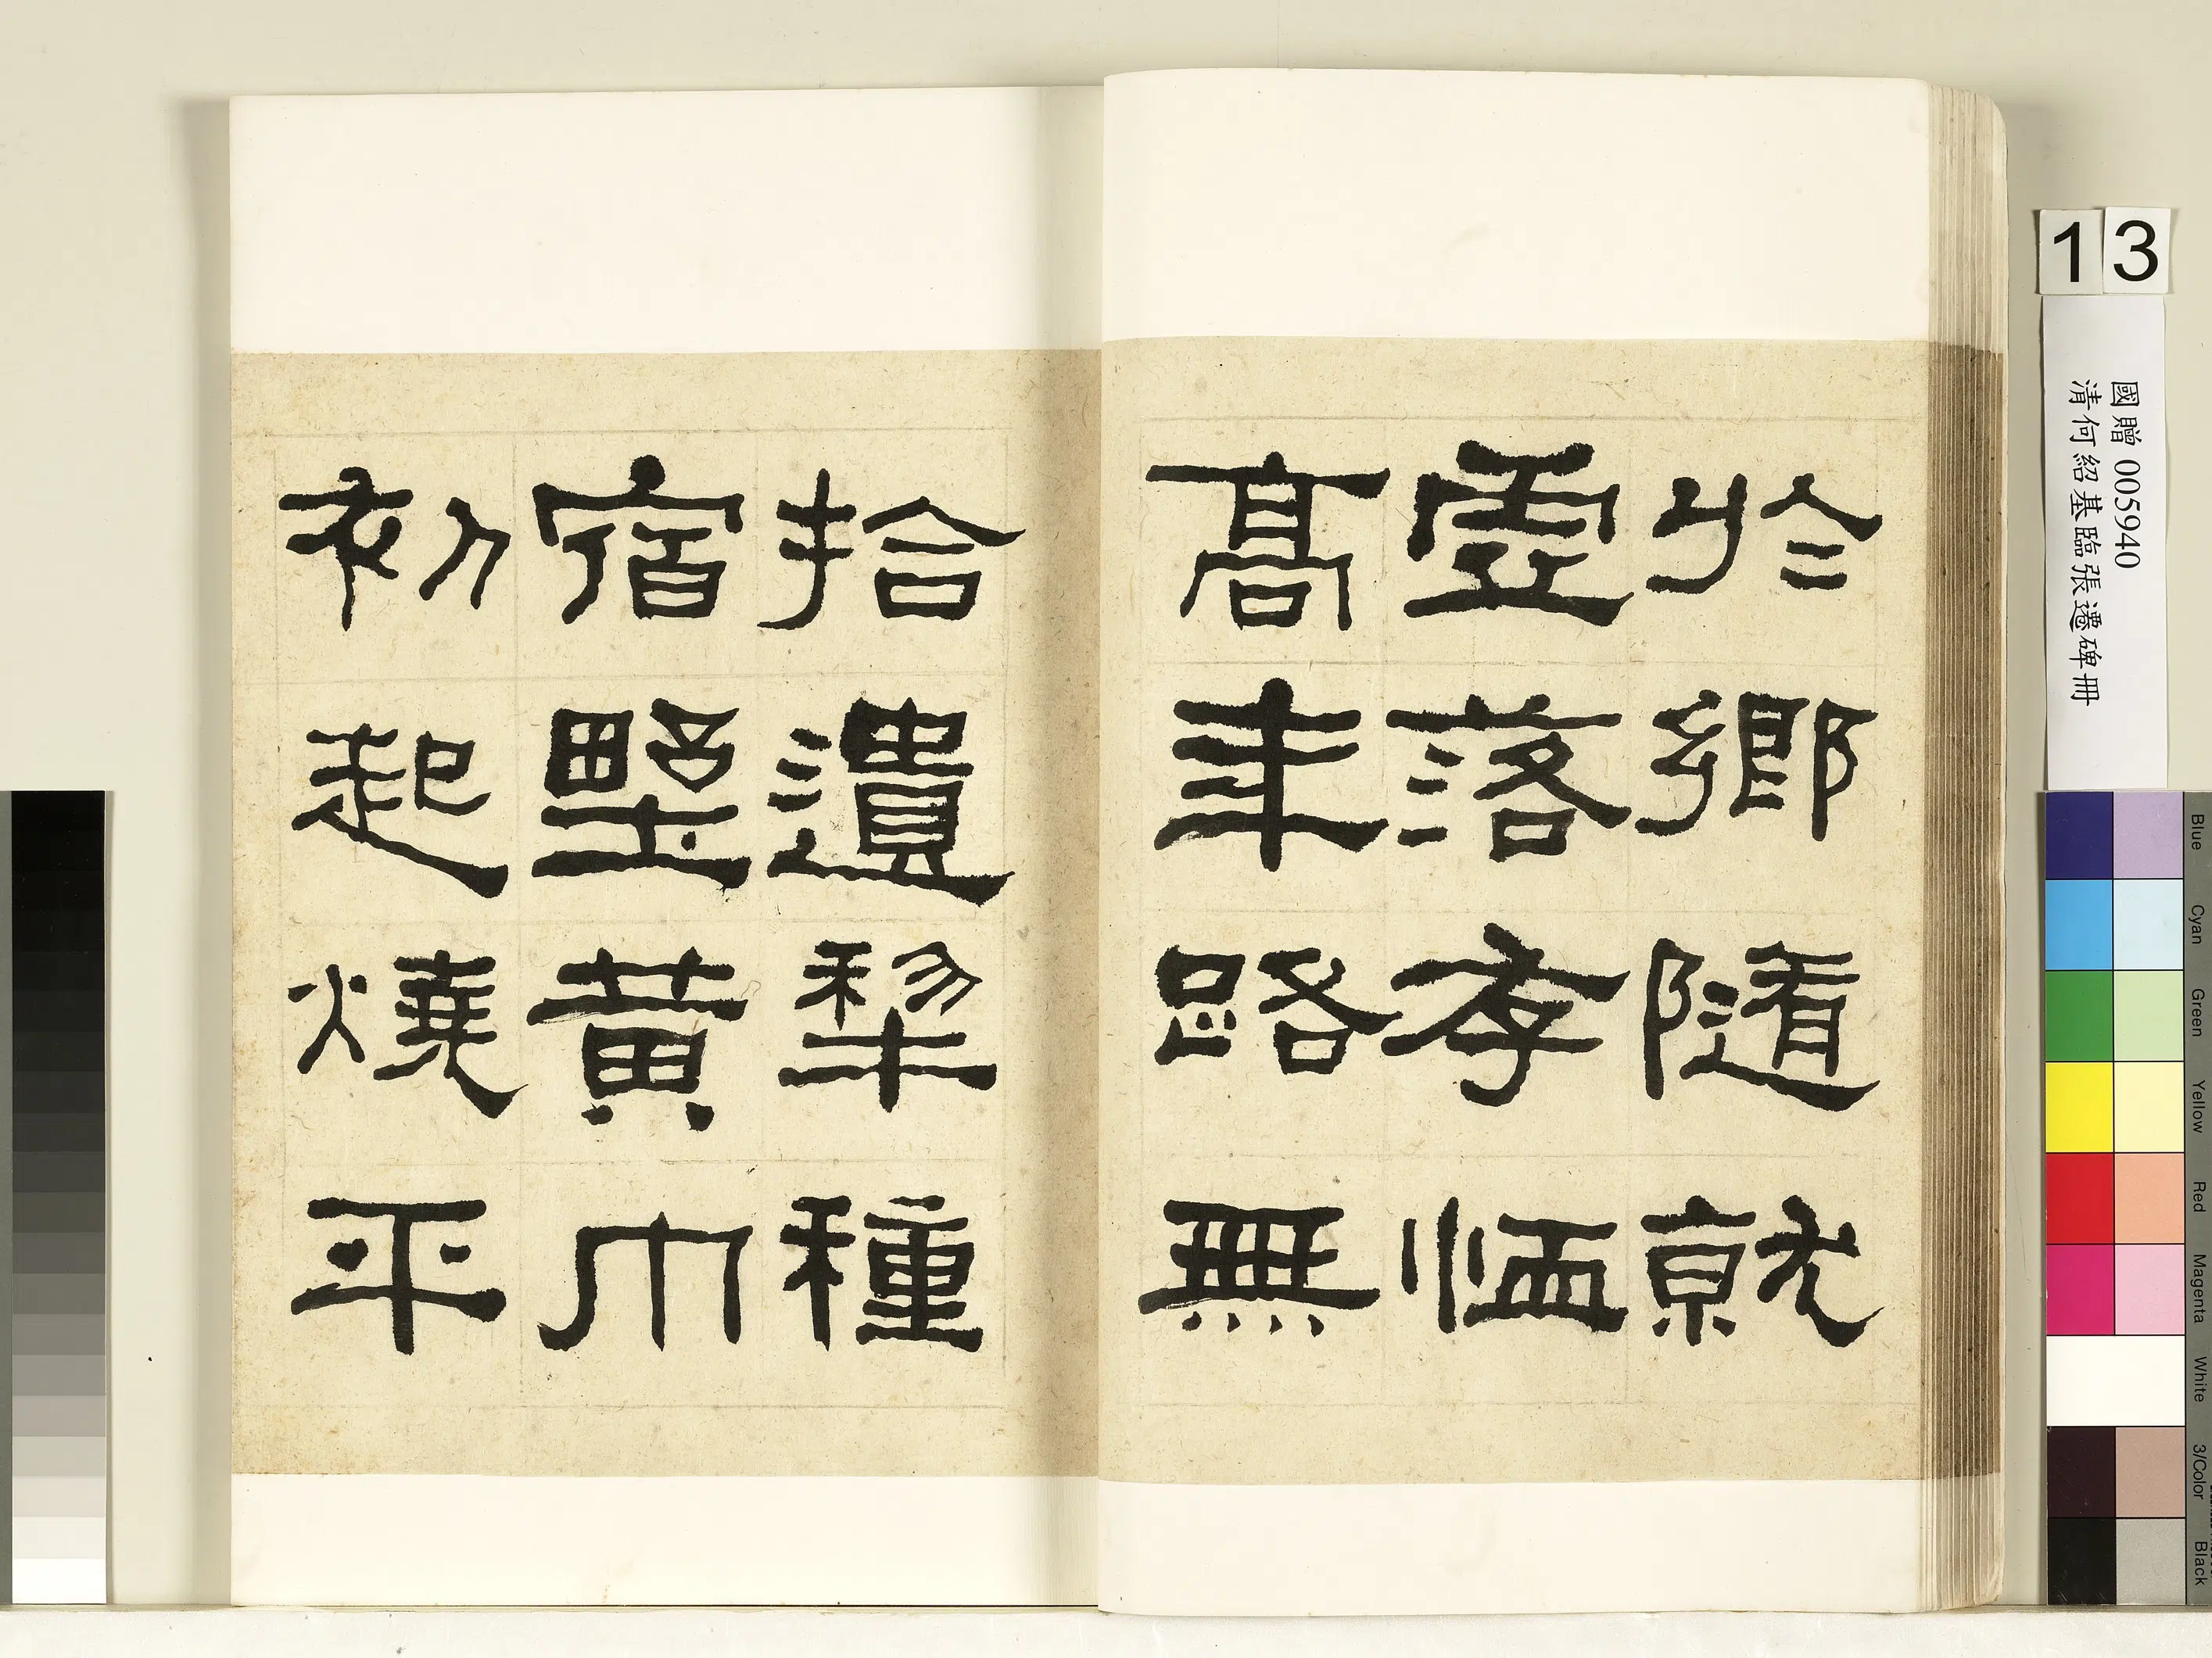 於鄉隨就
虛落存恤
高年路無
拾遺犂種
宿野黃巾
初起燒平
13
國贈 005940
清何紹基臨張遷碑冊
Blue
Cyan
Green
Yellow
Red
Magenta
White
3/Color
Black